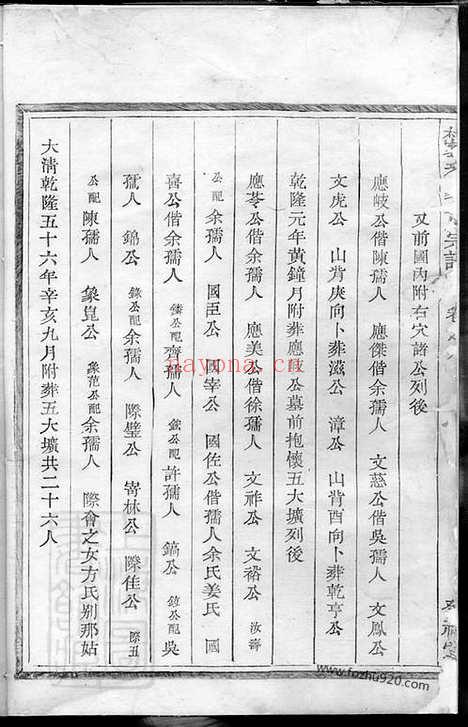 又前國內附右穴諸公列後
應岐公偕陳孺人 應傑公偕余孺人 文慈公偕吳孺人 文鳳公
文虎公 山背庚向卜葬滋公 漳公 山背酉向卜葬乾亨公
乾隆元年黃鐘月附葬應公墓前抱懷五大壙列後
應苓公偕余孺人 應美公偕徐孺人 文祚公 文裕公 汝壽
公配余孺人 國臣公 國宰公 國佐公偕孺人余氏姜氏 國
喜公偕余孺人 公配齊孺人 公配許孺人 鎬公 公配吳
孺人 錦公 公配余孺人 際璧公 嵜林公 際佳公 際五
公配陳孺人 象崑公 象范公配余孺人 際會之女方氏别那姑
大清乾隆五十六年辛亥九月附葬五大壙共二十六人
nayona.cn
www.fozhu920.com